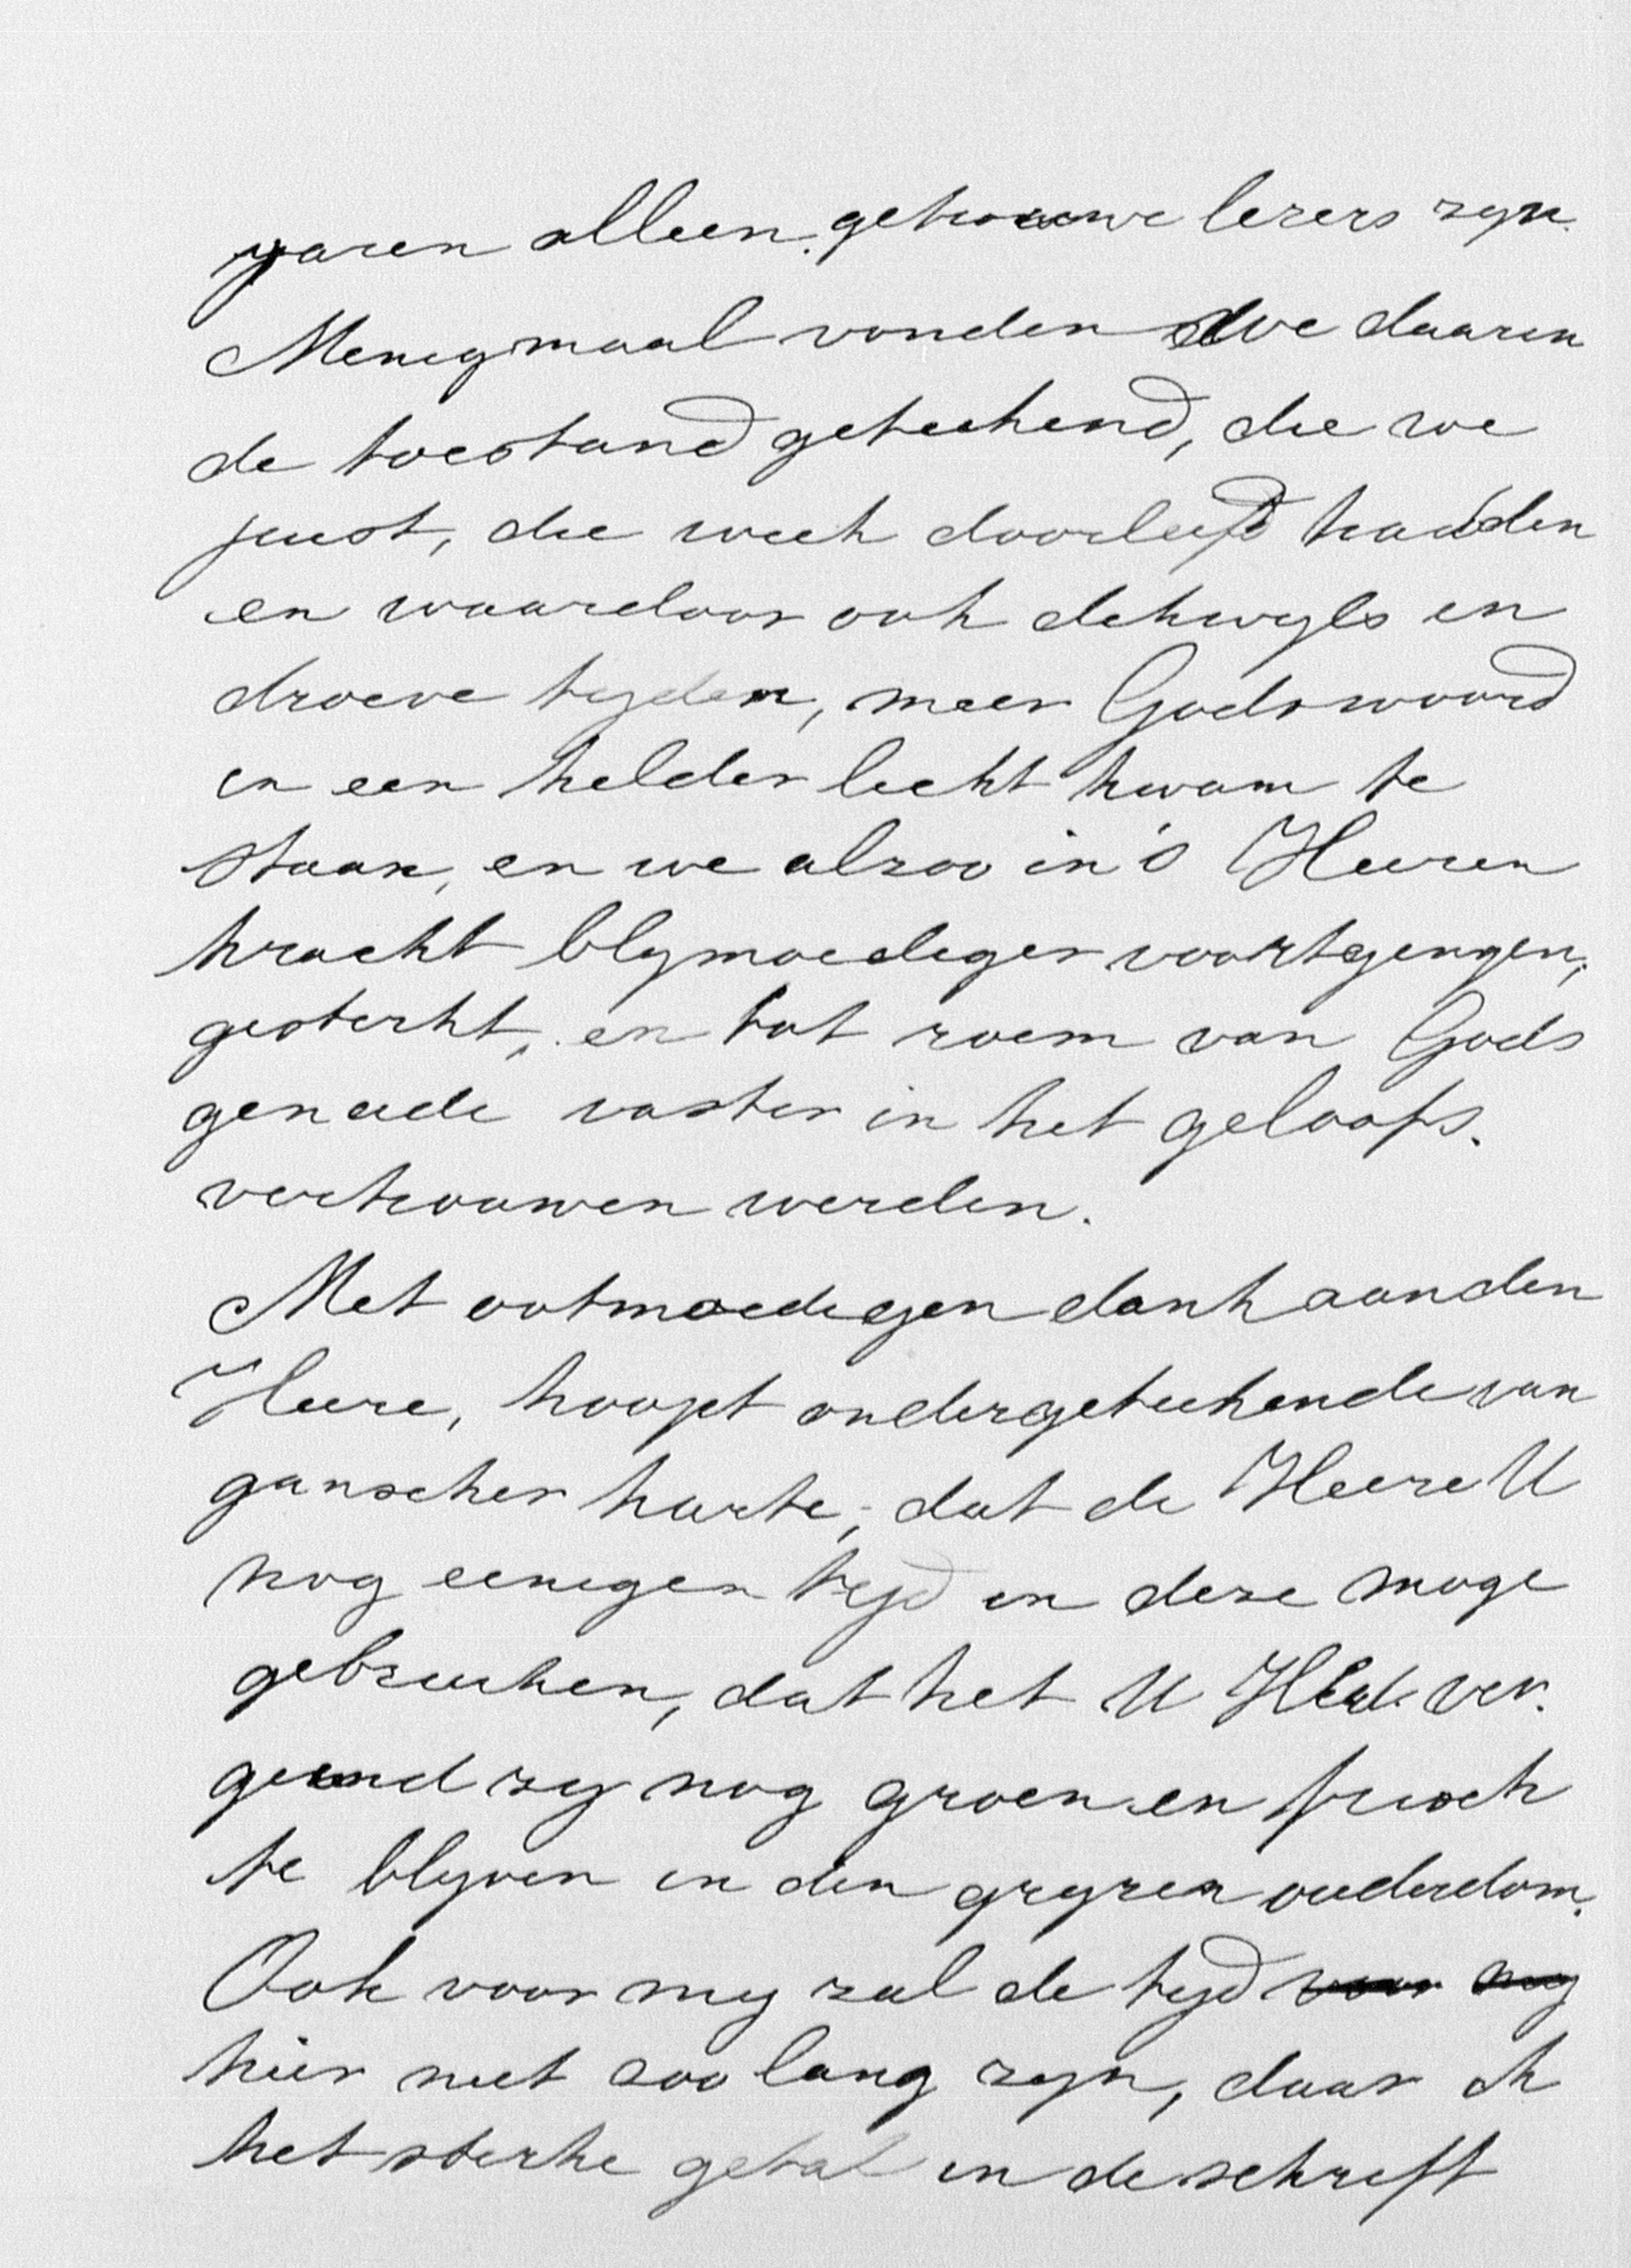 yaren alleen. getrouwe lezers zyn.
Menigmaal vonden we daarin
de toestand geteekend, die we
juist, die week doorleefd hadden
en waardoor ook dikwyls in
droeve tyden, meer Gods woord
in een helder licht kwam te
staan, en we alzoo in 's Heeren
kracht blymoediger voortgingen,
gesterkt, en tot roem van Gods
genade vaster in het geloofs.
vertrouwen werden.
Met ootmoedigen dank aan den
Heere, hoopt ondergeteekende van
ganscher harte, dat de Heere U
nog eenigen tyd in deze moge
gebruiken, dat het U ver.
gund zy nog groen en frisch
te blyven in den gryzen ouderdom.
Ook voor my zal de tyd voor my
hier niet zoo lang zyn, daar ik
het sterke getal in de schrift